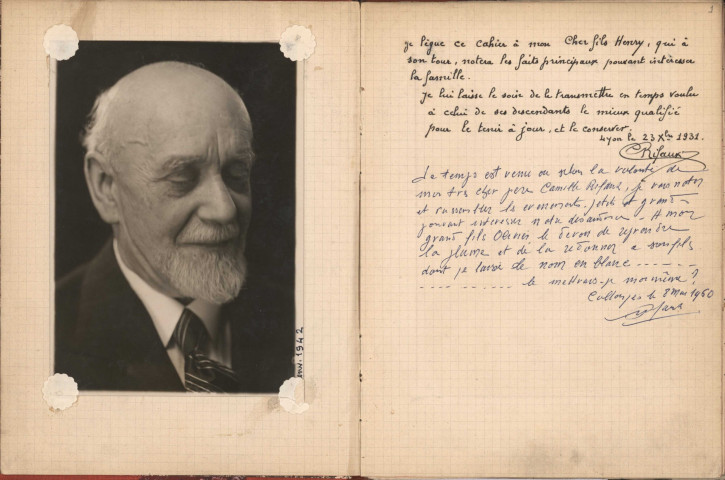 1
je lègue ce cahier à mon Cher fils Henry, qui à
son tour, notera les faits principaux pouvant intéresser
la famille.
Je lui laisse le soin de le transmettre en temps voulu
à celui de ses descendants le mieux qualifié
pour le tenir à jour, et le conserver.
Lyon le 23 Xbre 1931.
CRifaux
Le temps est venu où selon la volonté de
mon très cher père Camille Rifaux, je vais noter
et les évènements petits et grands
pouvant intéresser notre descendance - A mon
grand fils le devoir de reprendre
la plume et de la redonner a son fils
dont je laisse le nom en blanc - - - - -
- - - - - - - le mettrais-je moi même ?
Collonges le 8 Mai 1960
1942